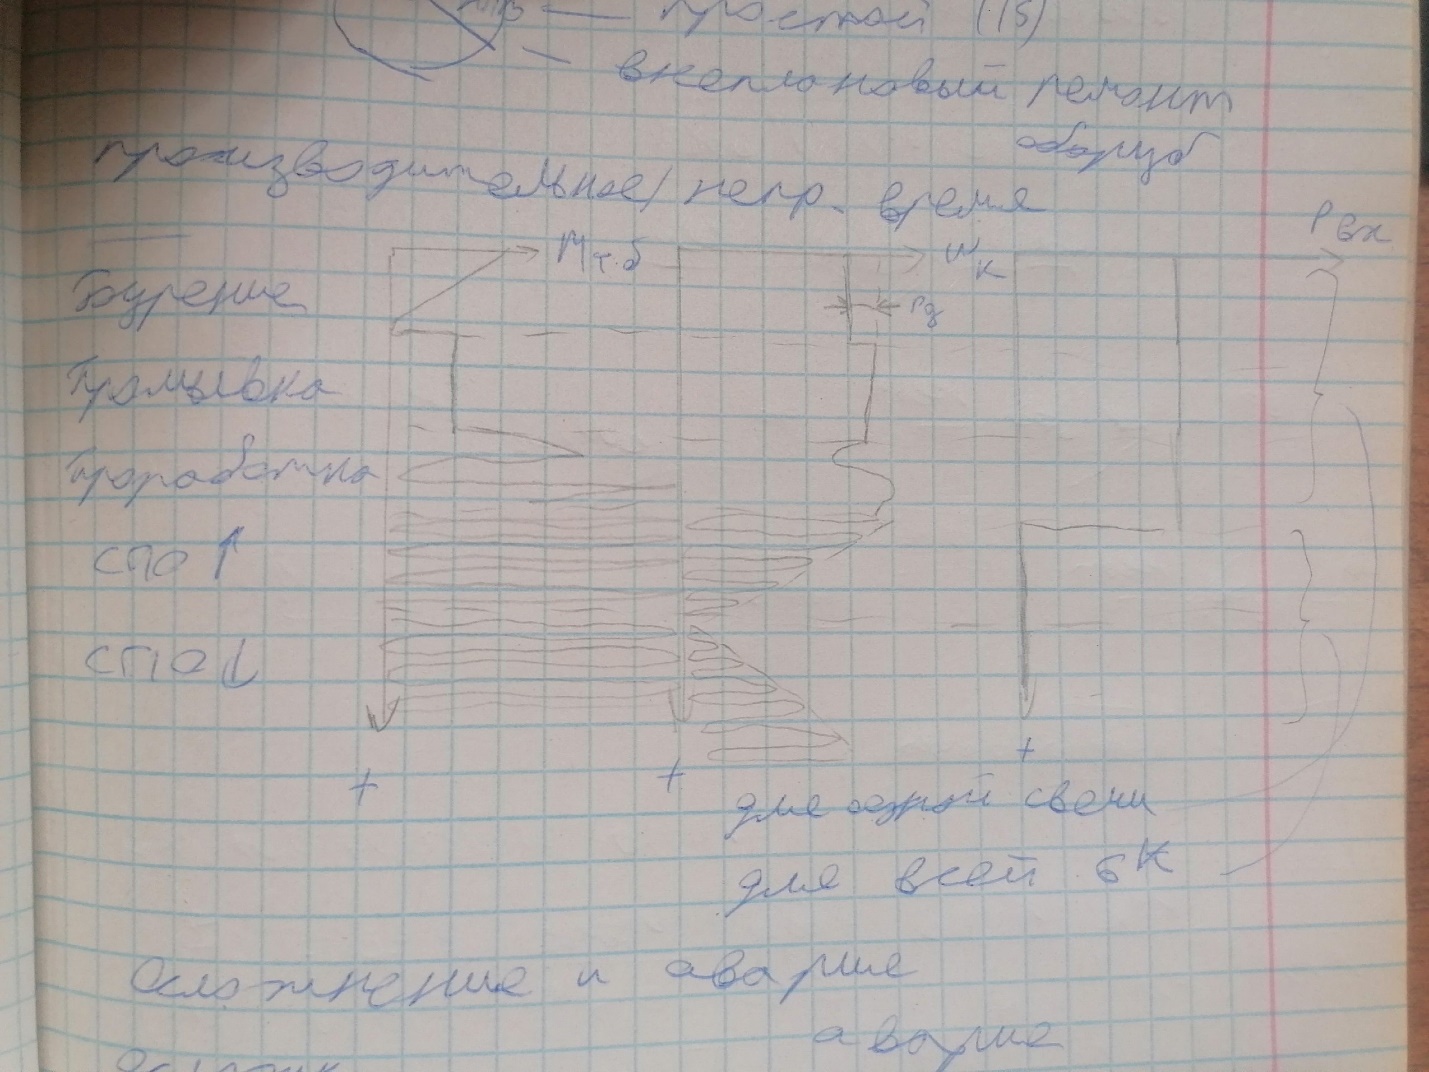 — простой (15)
— внеплановый ремонт
оборуд
производительное/непр. время
Pвх
Мт.б
Wк
Бурение
Pд
Промывка
Проработка
СПО ↑
СПО ↓
+ + +
для одной свечи
для всей БК
Осложнение и авария
авария